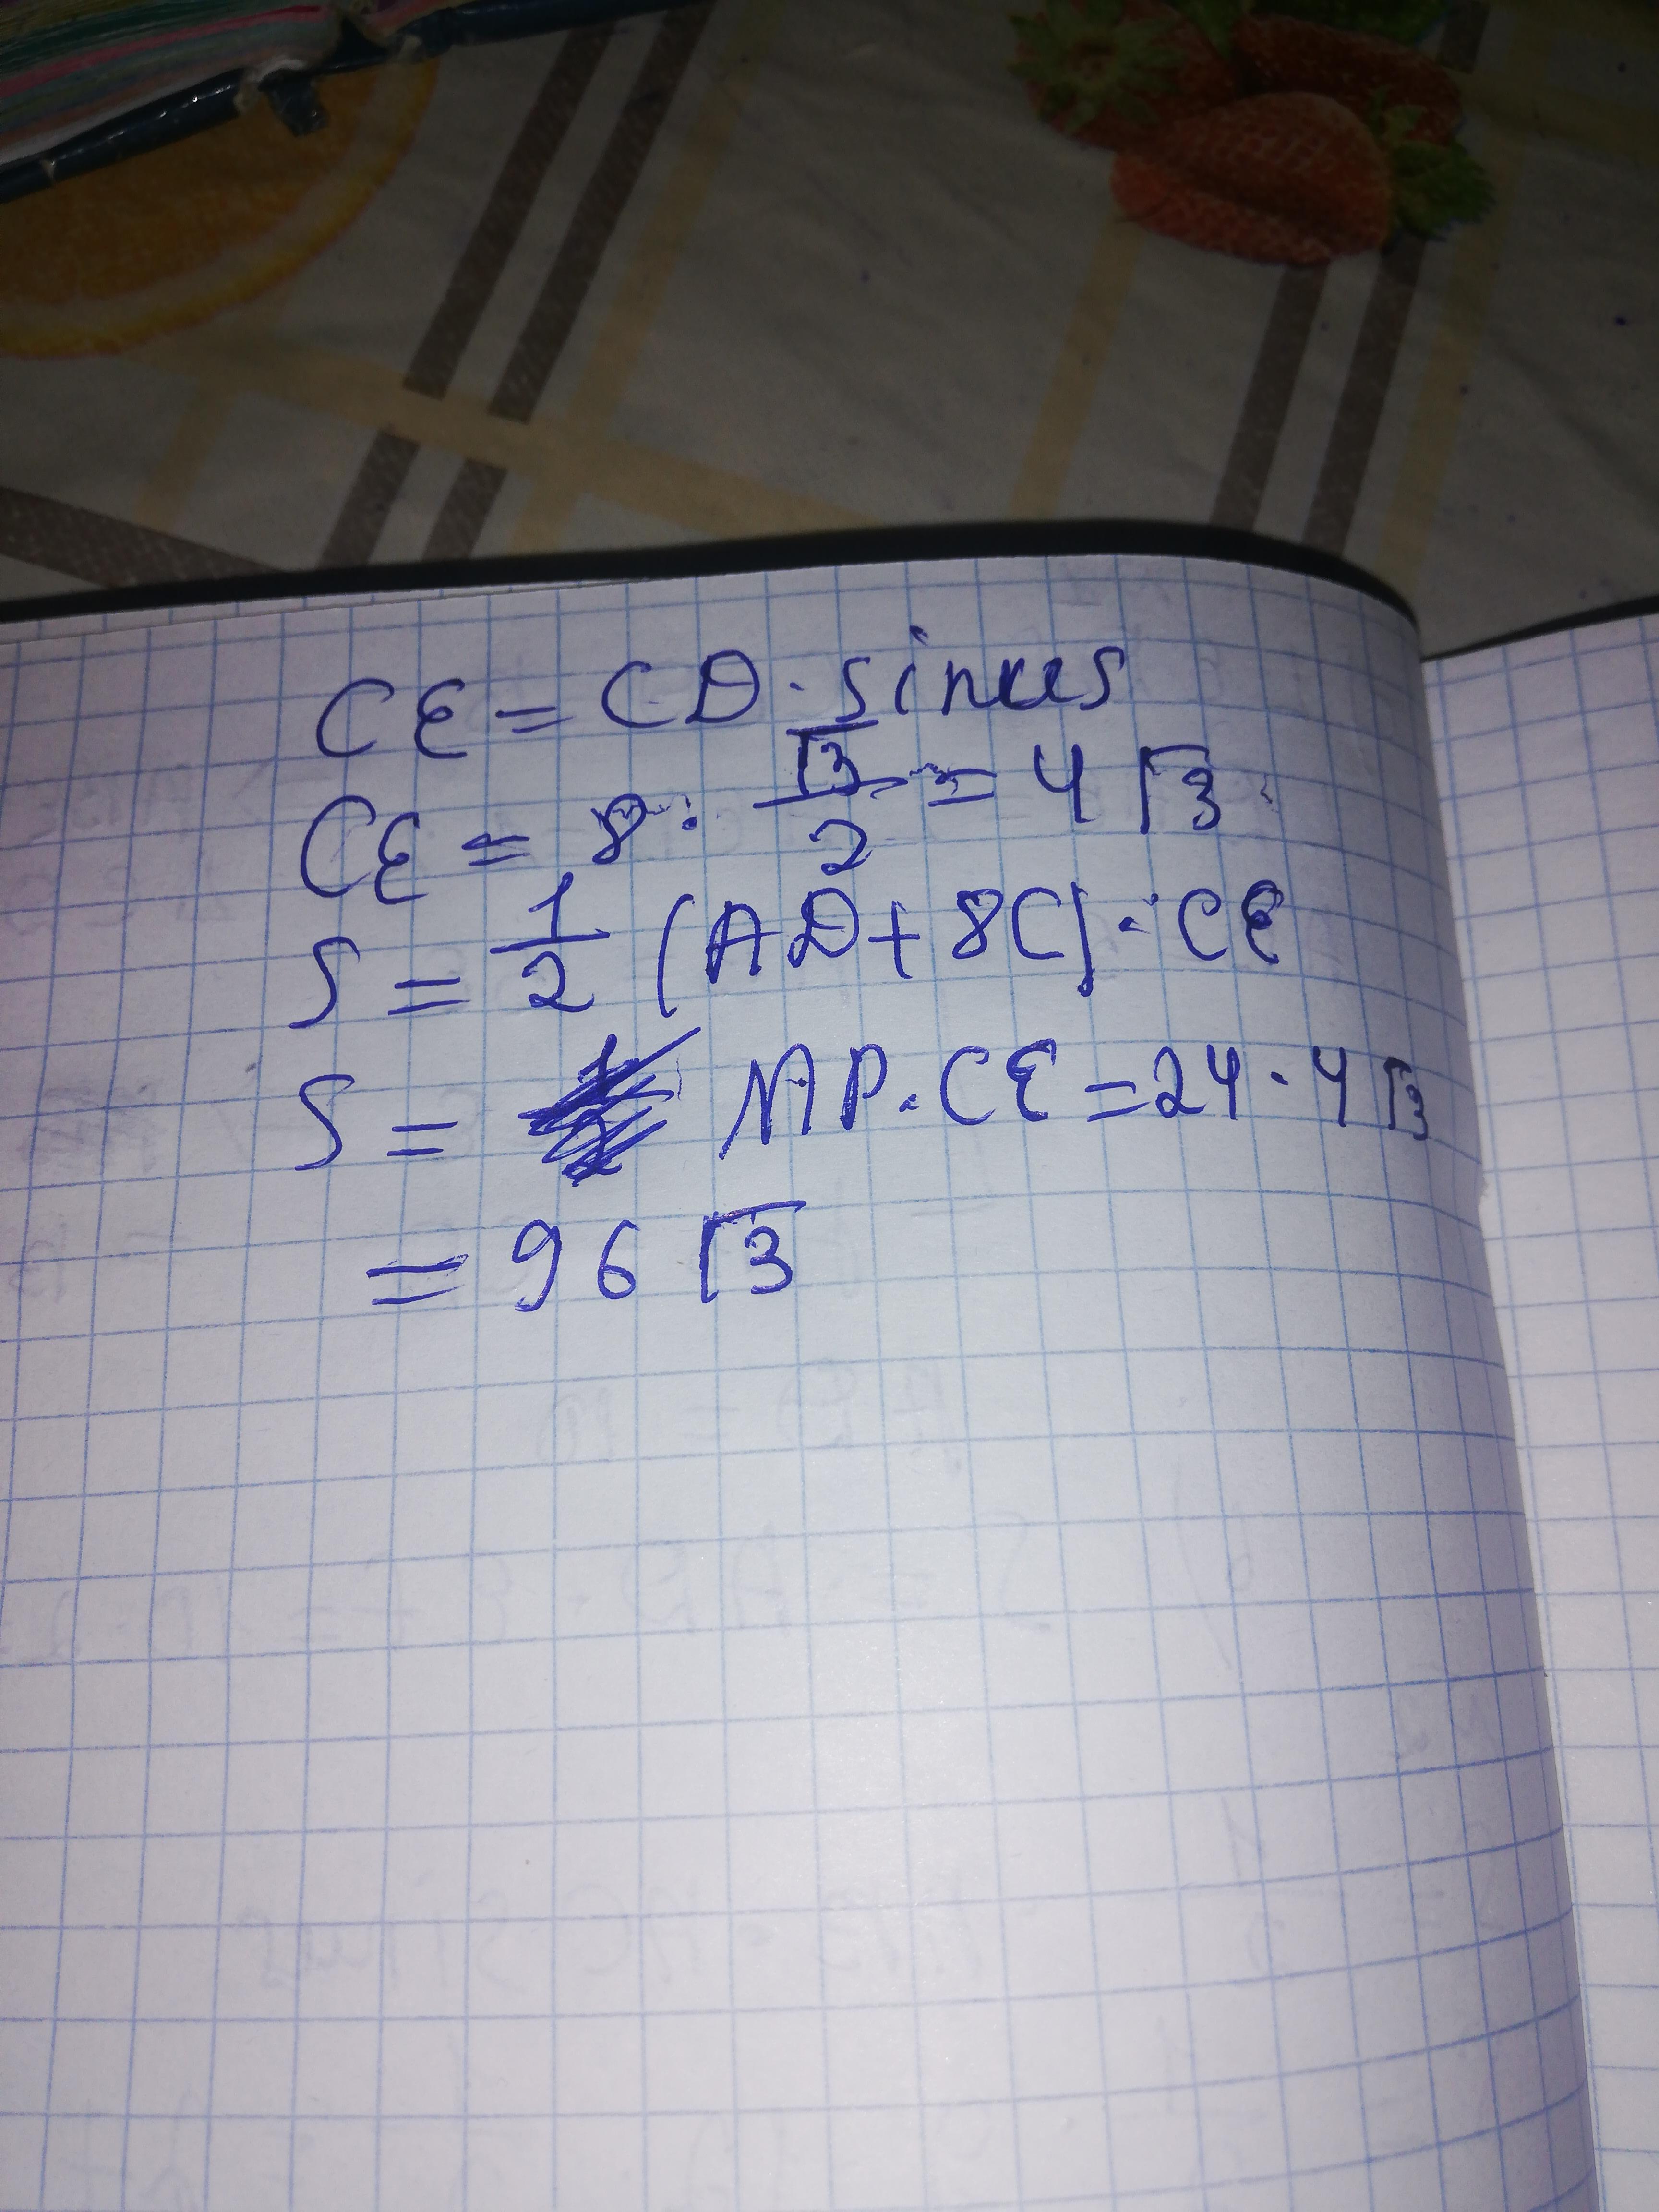 CE = CD · sinus
CE = 8 · √3/2 = 4√3
S = 1/2 (AD + BC) · CE
S = MP · CE = 24 · 4√3
= 96√3